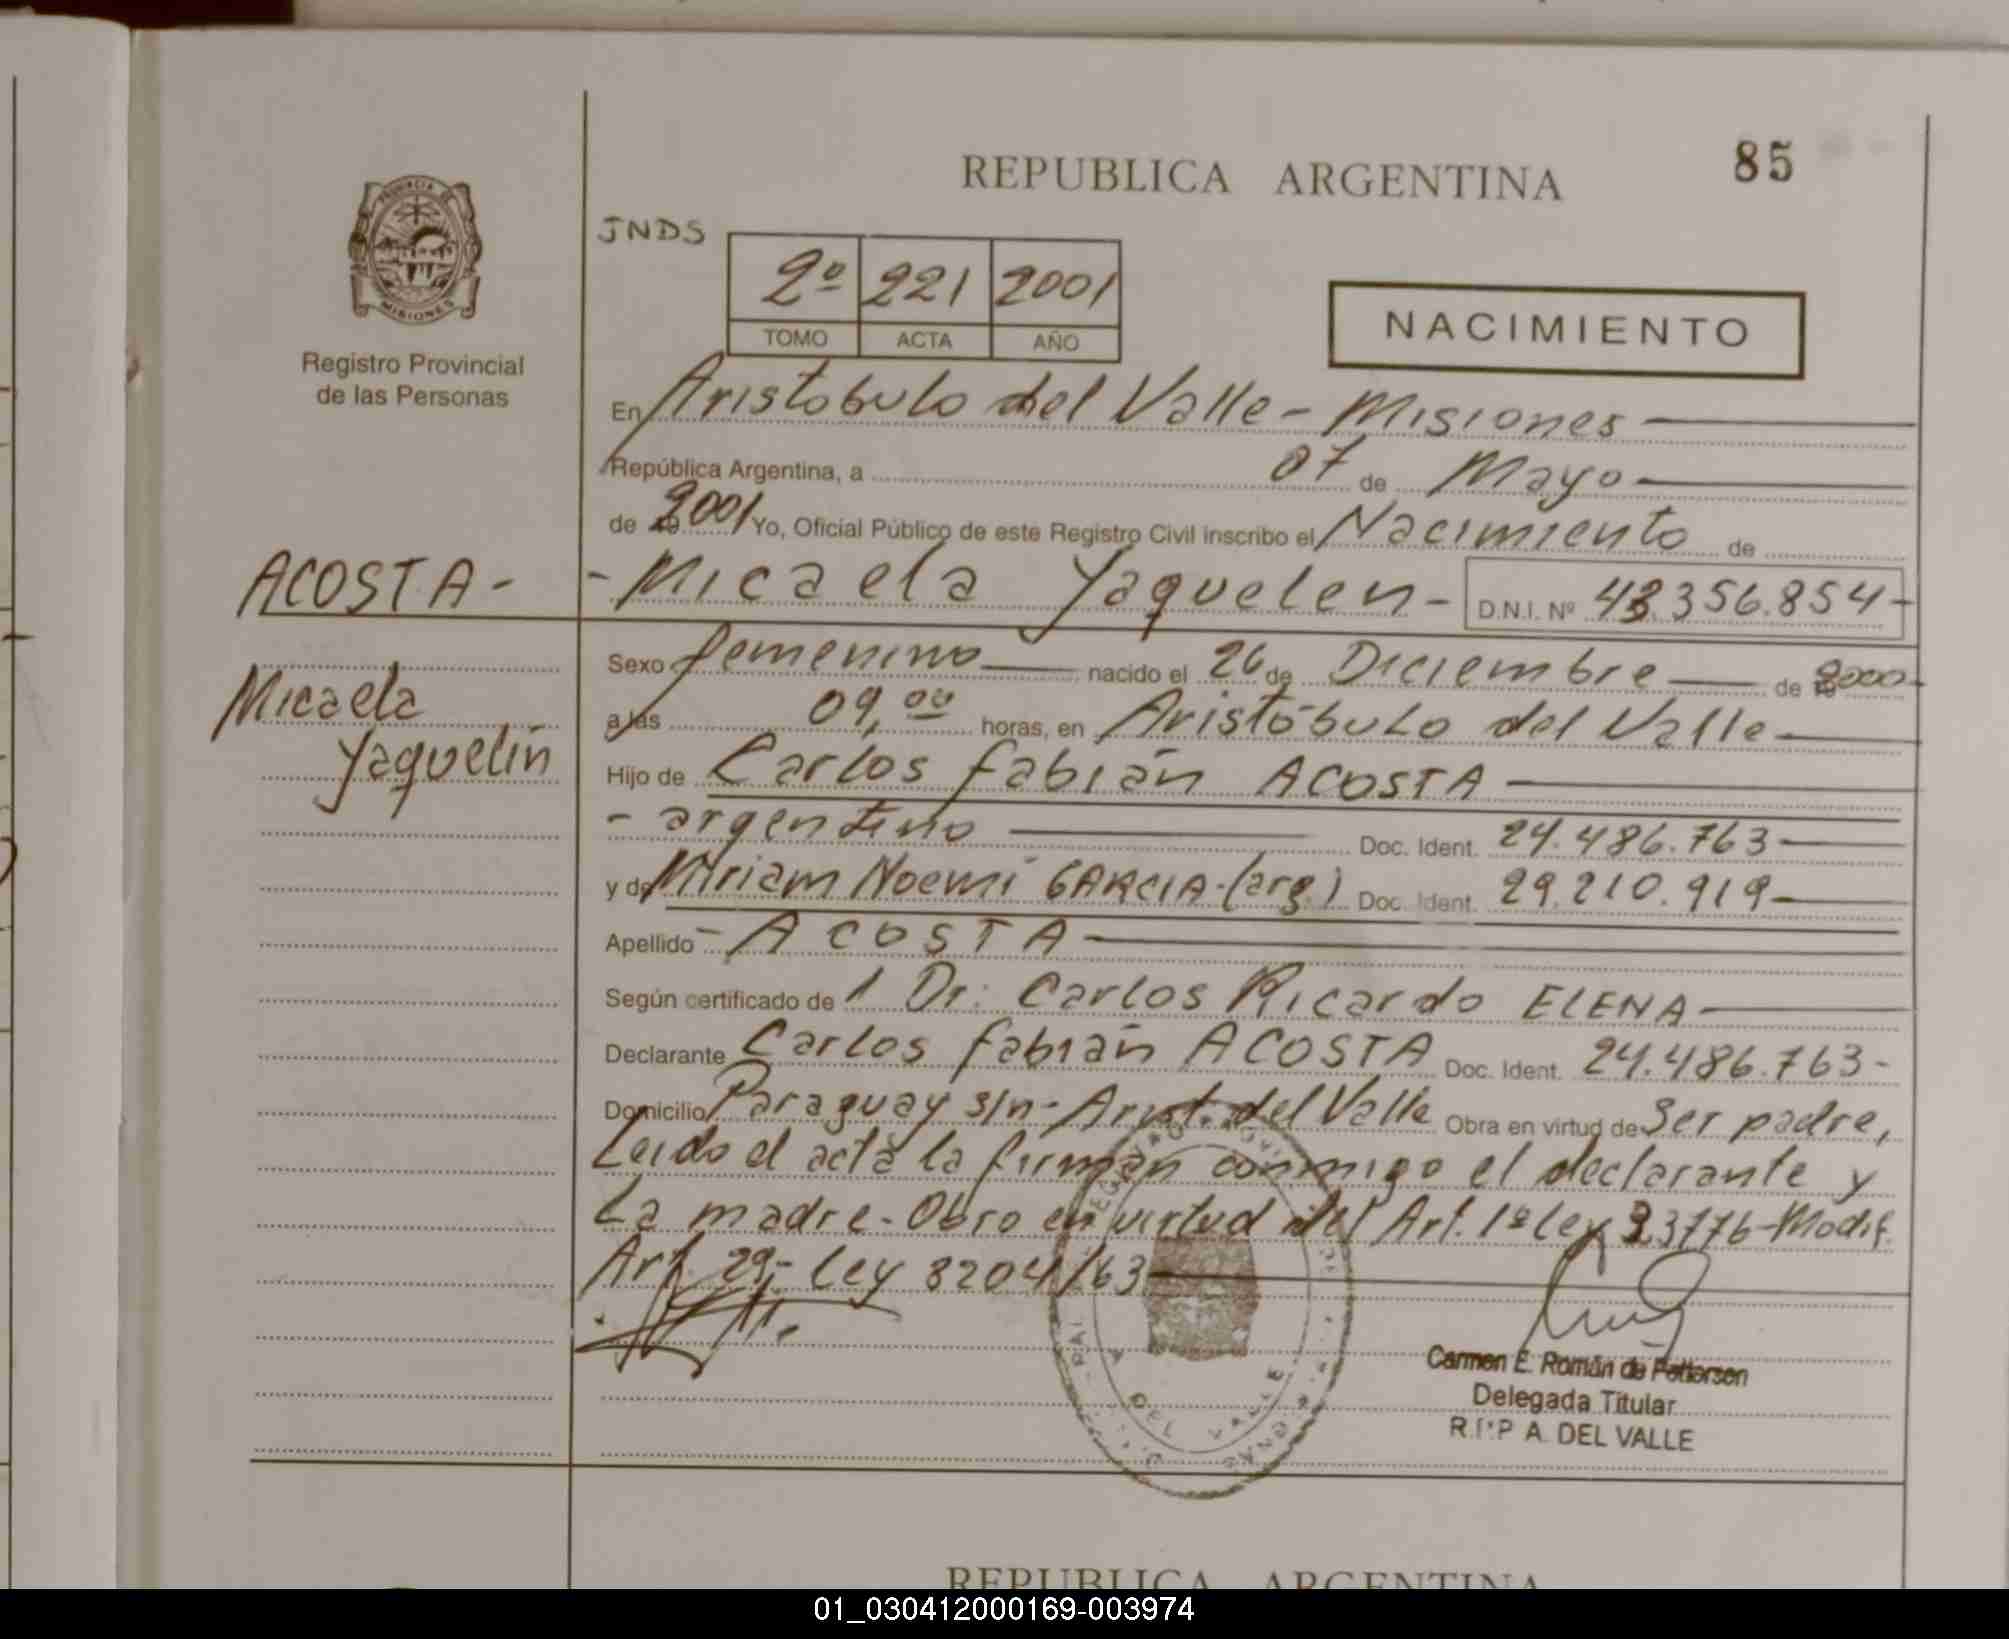 85
REPUBLICA ARGENTINA
PROVINCIA DE
MISIONES
Registro Provincial
de las Personas
JNDS
2º 221 2001
TOMO ACTA AÑO
NACIMIENTO
En Aristobulo del Valle - Misiones
República Argentina, a 07 de Mayo
de 2001 Yo, Oficial Público de este Registro Civil inscribo el Nacimiento de
ACOSTA - - Micaela Yaquelen - D.N.I. Nº 43.356.854 -
Micaela
Yaquelin
Sexo femenino nacido el 26 de Diciembre de 2000
a las 09,00 horas, en Aristóbulo del Valle
Hijo de Carlos Fabián ACOSTA
- argentino Doc. Ident. 24.486.763
y de Miriam Noemí GARCIA - (arg.) Doc. Ident. 29.210.919
Apellido - ACOSTA
Según certificado de 1 Dr: Carlos Ricardo ELENA
Declarante Carlos Fabián ACOSTA Doc. Ident. 24.486.763 -
Domicilio Paraguay s/n - Arist. del Valle Obra en virtud de Ser padre,
Leido el acta la firman conmigo el declarante y
La madre - Obro en virtud del Art. 1º Ley 23776 - Modif.
Art. 29 - Ley 8204/63
Carmen E. Román de
Delegada Titular
R.P.P A. DEL VALLE
DEL VALLE
REPUBLICA ARGENTINA
01_030412000169-003974